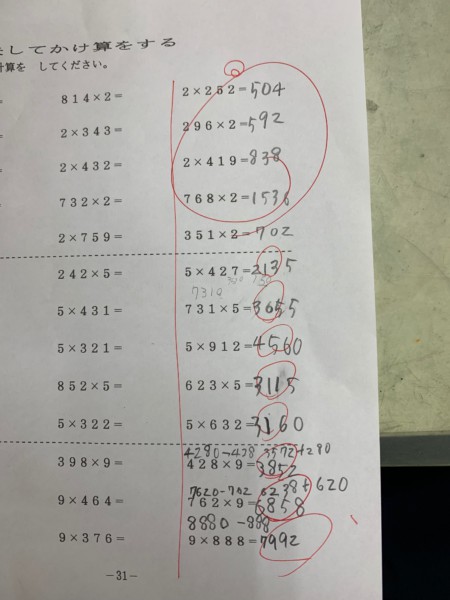 してかけ算をする
計算を してください。
814×2= 2×252=504
2×343= 296×2=592
2×432= 2×419=838
732×2= 768×2=1536
2×759= 351×2=702
242×5= 5×427=2135
7310
5×431= 731×5=3655
5×321= 5×912=4560
852×5= 623×5=3115
5×322= 5×632=3160
4280-428 3572+280
398×9= 428×9=3852
7620-762 6238+620
9×464= 762×9=6858
8880-888
9×376= 9×888=7992
-31-